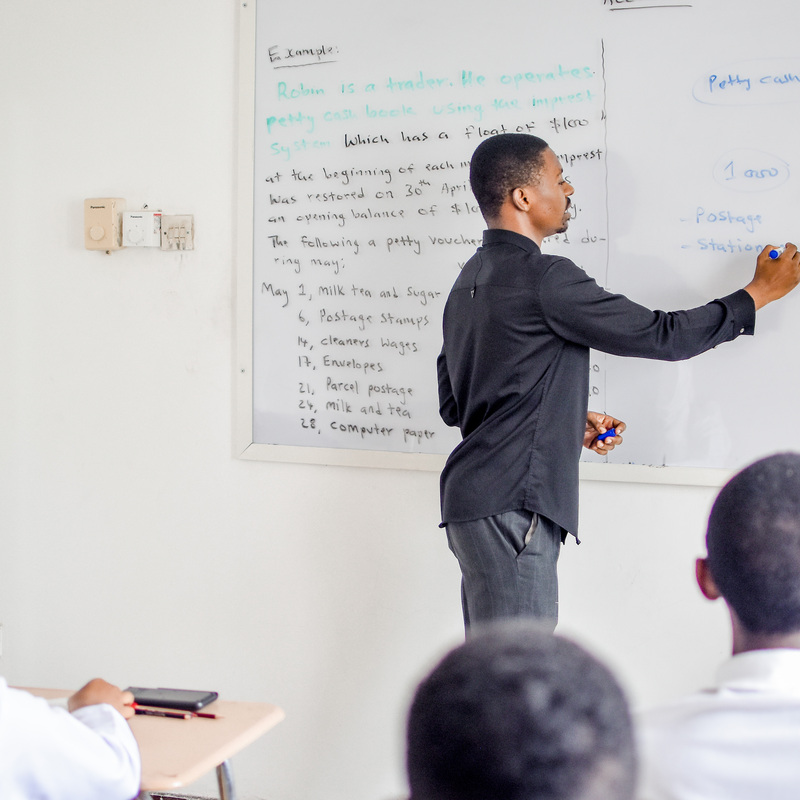 Example:
Robin is a trader. He operates
petty cash book using the imprest
system which has a float of $1000
at the beginning of each imprest
was restored on 30th Apri
an opening balance of $10
The following a petty voucher du-
ring may:
May 1, milk tea and sugar
6, Postage stamps
14, cleaners wages
17, Envelopes
21, Parcel postage
24, milk and tea
28, computer paper
Petty cash
1 000
- Postage
- Station